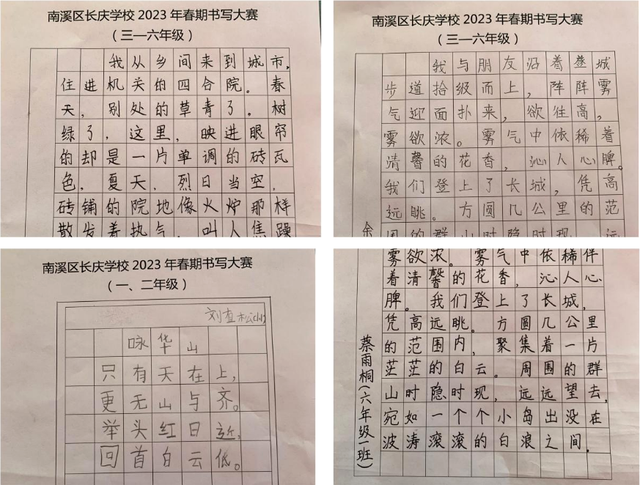 南溪区长庆学校2023年春期书写大赛
（三一六年级）
我从乡间来到城市，
住进机关的四合院。春
天，别处的草青了，树
绿了，这里，映进眼帘
的却是一片单调的砖瓦
色。夏天，烈日当空，
砖铺的院地像火炉那样
散发着热气，叫人焦躁
南溪区长庆学校2023年春期书写大赛
（三一六年级）
我与朋友沿着登城
步道拾级而上，阵阵雾
气迎面扑来，欲往高，
雾欲浓。雾气中依稀着
清馨的花香，沁人心脾。
我们登上了长城，凭高
远眺。方圆几公里的范
围的群山时隐时现，
南溪区长庆学校2023年春期书写大赛
（一、二年级）
咏华山
只有天在上，
更无山与齐。
举头红日近，
回首白云低。
雾欲浓。雾气中依稀伴
着清馨的花香，沁人心
脾。我们登上了长城，
凭高远眺。方圆几公里
的范围内，聚集着一片
茫茫的白云。周围的群
山时隐时现，远远望去，
宛如一个个小岛出没在
波涛滚滚的白浪之间。
蔡雨桐（六年级一班）